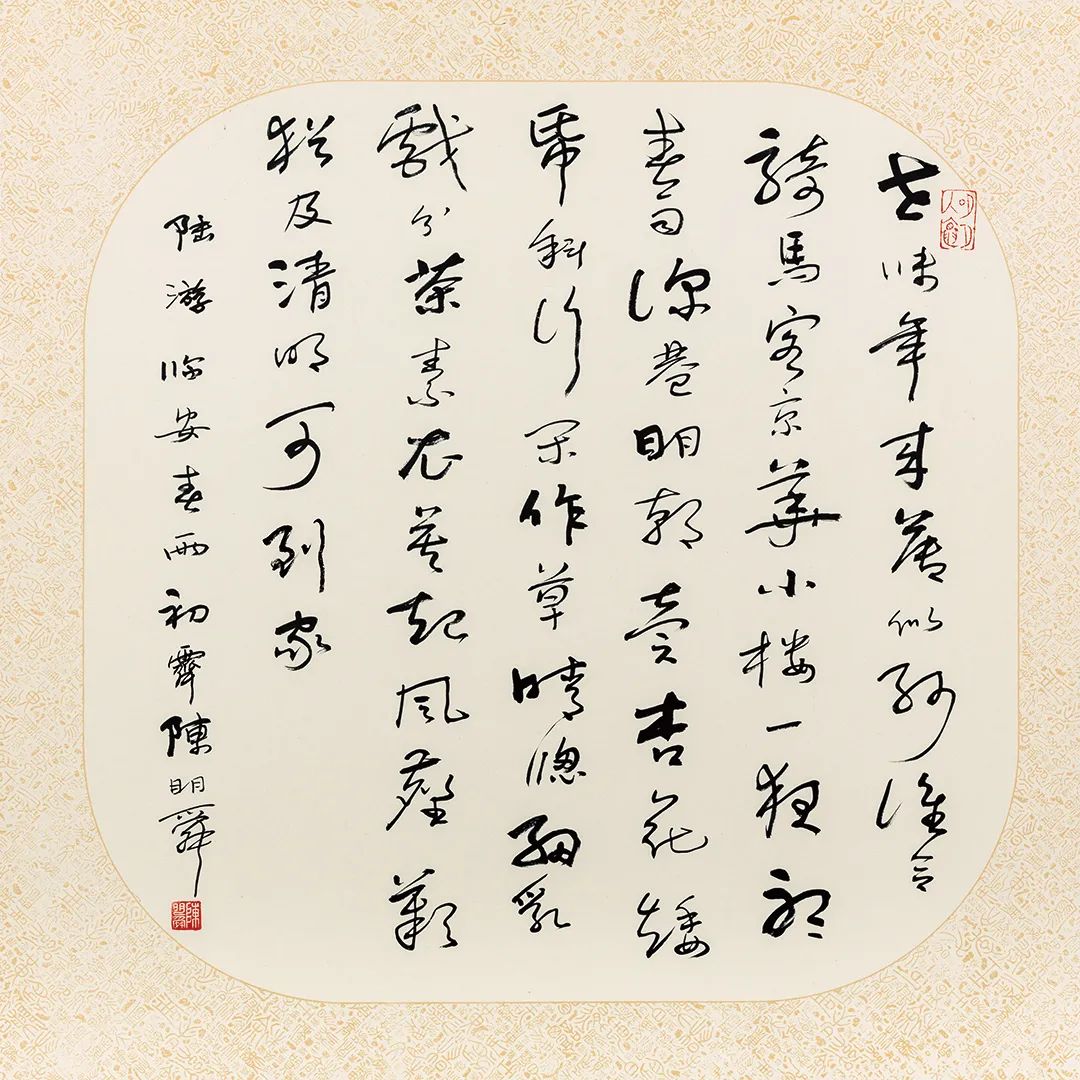 世味年來薄似紗誰令
騎馬客京華小樓一夜聽
春雨深巷明朝賣杏花矮
帋斜行閒作草晴窗細乳
戲分茶素衣莫起風塵歎
猶及清明可到家
陸游臨安春雨初霽陳明舜